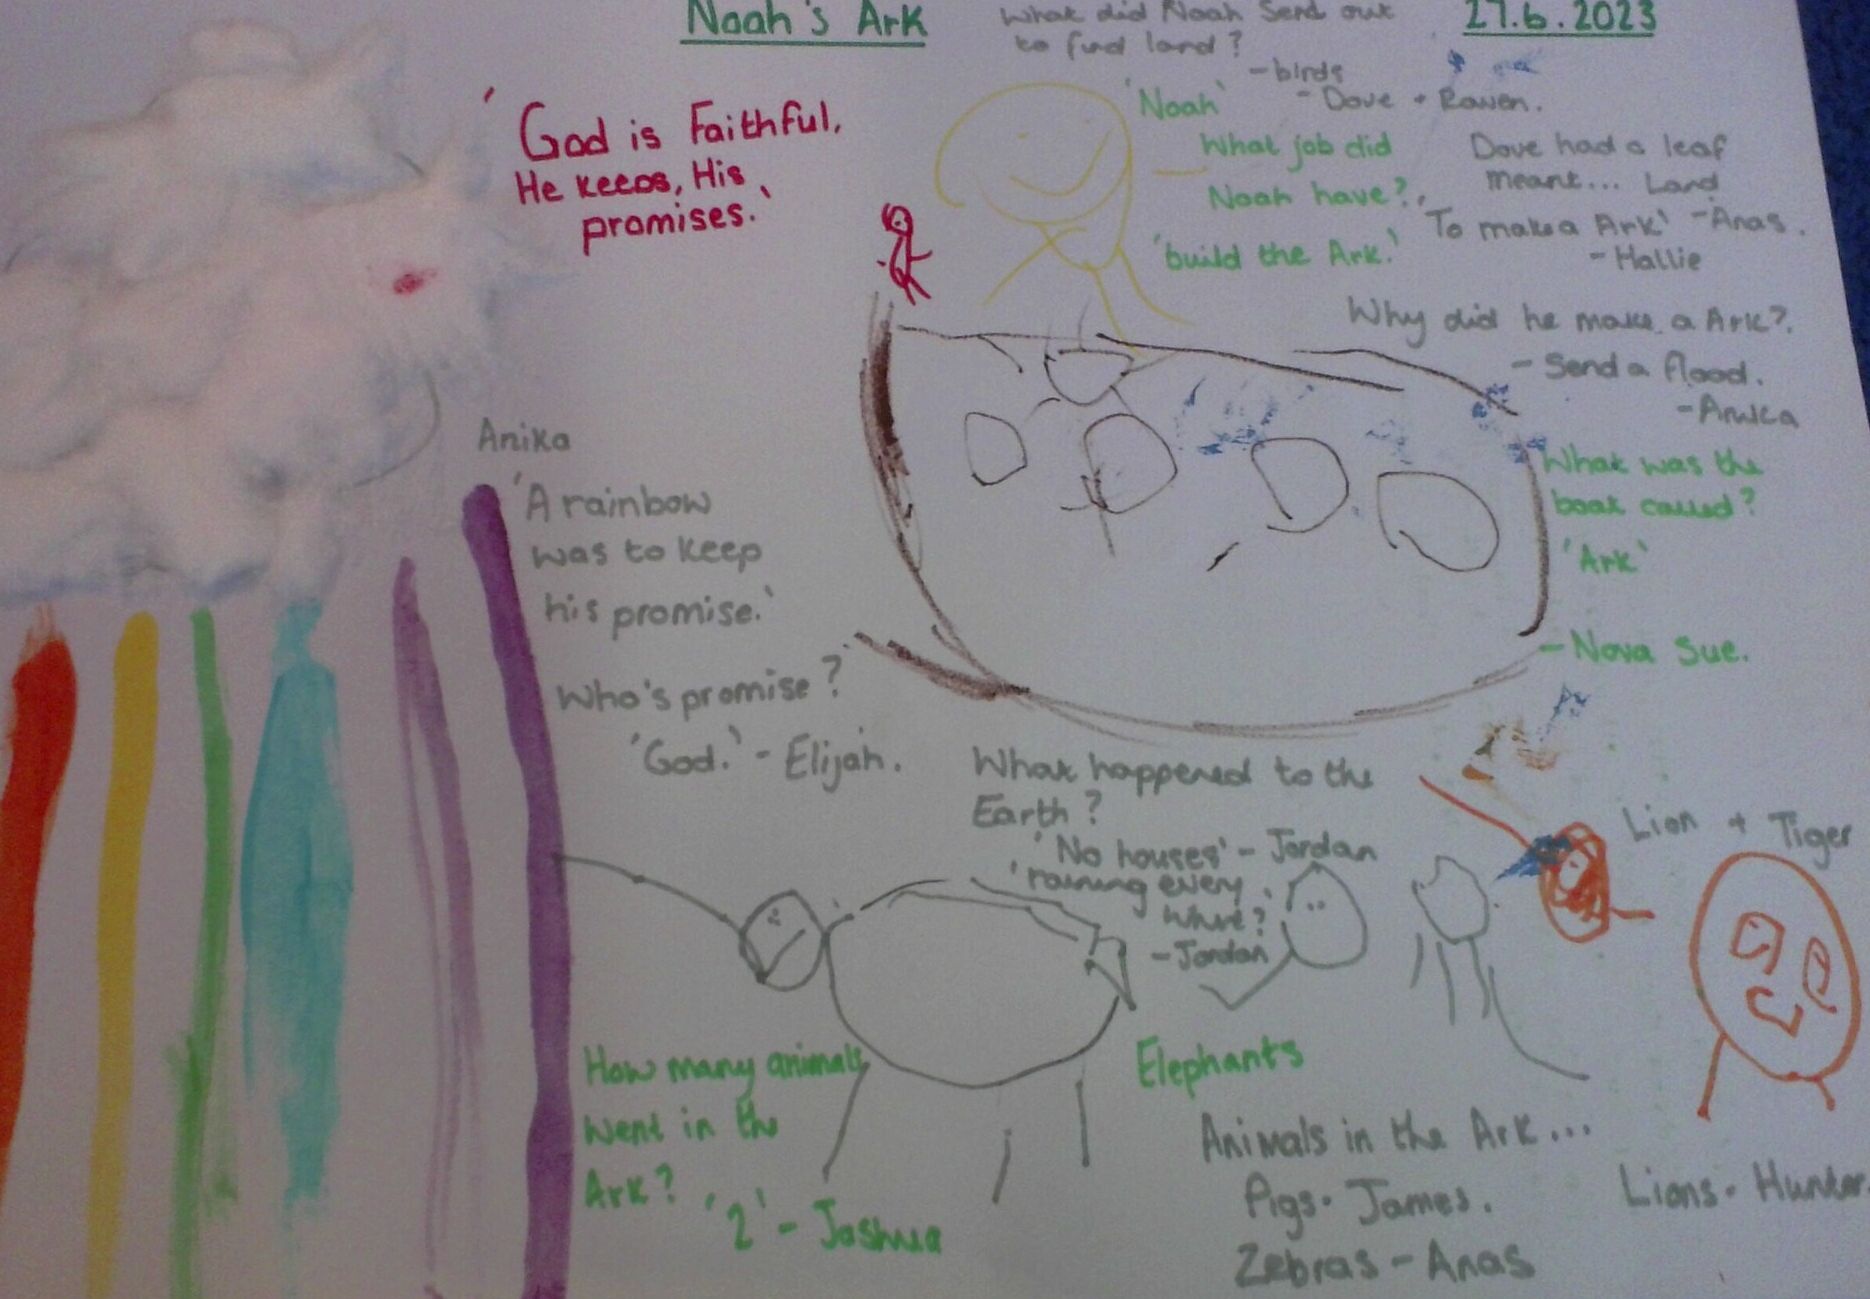 Noah's Ark
27.6.2023
What did Noah send out
to find land?
- birds
- Dove + Raven.
'God is Faithful,
He keeps, His
promises.'
'Noah'
What job did
Noah have?
'build the Ark.'
Dove had a leaf
meant... Land
- Anas.
To make a Ark'
- Hallie
Why did he make a Ark?
- Send a flood.
- Anika
What was the
boat called?
'Ark'
- Nova Sue.
Anika
'A rainbow
was to keep
his promise.'
Who's promise?
'God.' - Elijah.
What happened to the
Earth?
'No houses' - Jordan
'raining every
where?'
- Jordan
Lion + Tiger
How many animals
went in the
Ark?
'2' - Joshua
Elephants
Animals in the Ark...
Pigs - James.
Zebras - Anas
Lions - Hunter.